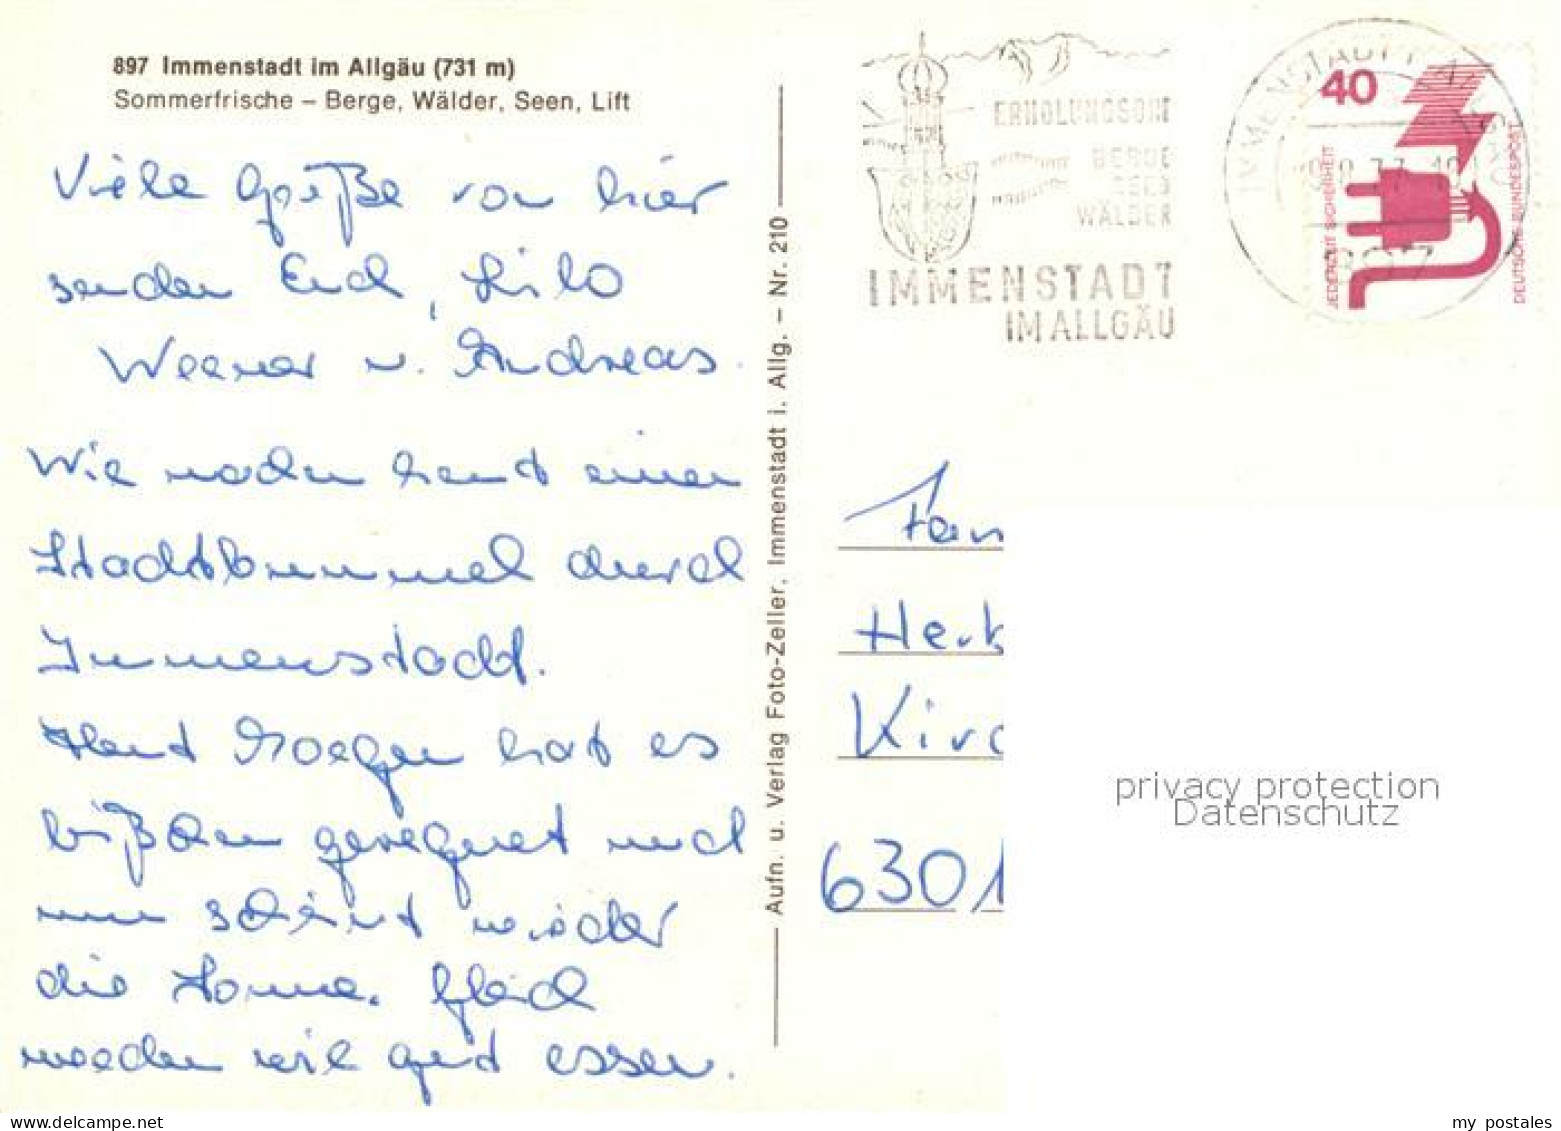 897 Immenstadt im Allgäu (731 m)
Sommerfrische – Berge, Wälder, Seen, Lift
Viele Grüße von hier
senden Euch, Lilo
Werner u. Andreas.
Wir machen heut einen
Stadtbummel durch
Immenstadt.
Heut Morgen hat es
bißchen geregnet und
nun scheint wieder
die Sonne. Gleich
werden wir gut essen.
Aufn. u. Verlag Foto-Zeller, Immenstadt i. Allg. – Nr. 210
ERHOLUNGSORT
BERGE
SEEN
WÄLDER
IMMENSTADT
IM ALLGÄU
IMMENSTADT
40
JEDERZEIT SICHERHEIT
DEUTSCHE BUNDESPOST
Fam
Herb
Kirc
6301
privacy protection
Datenschutz
my postales